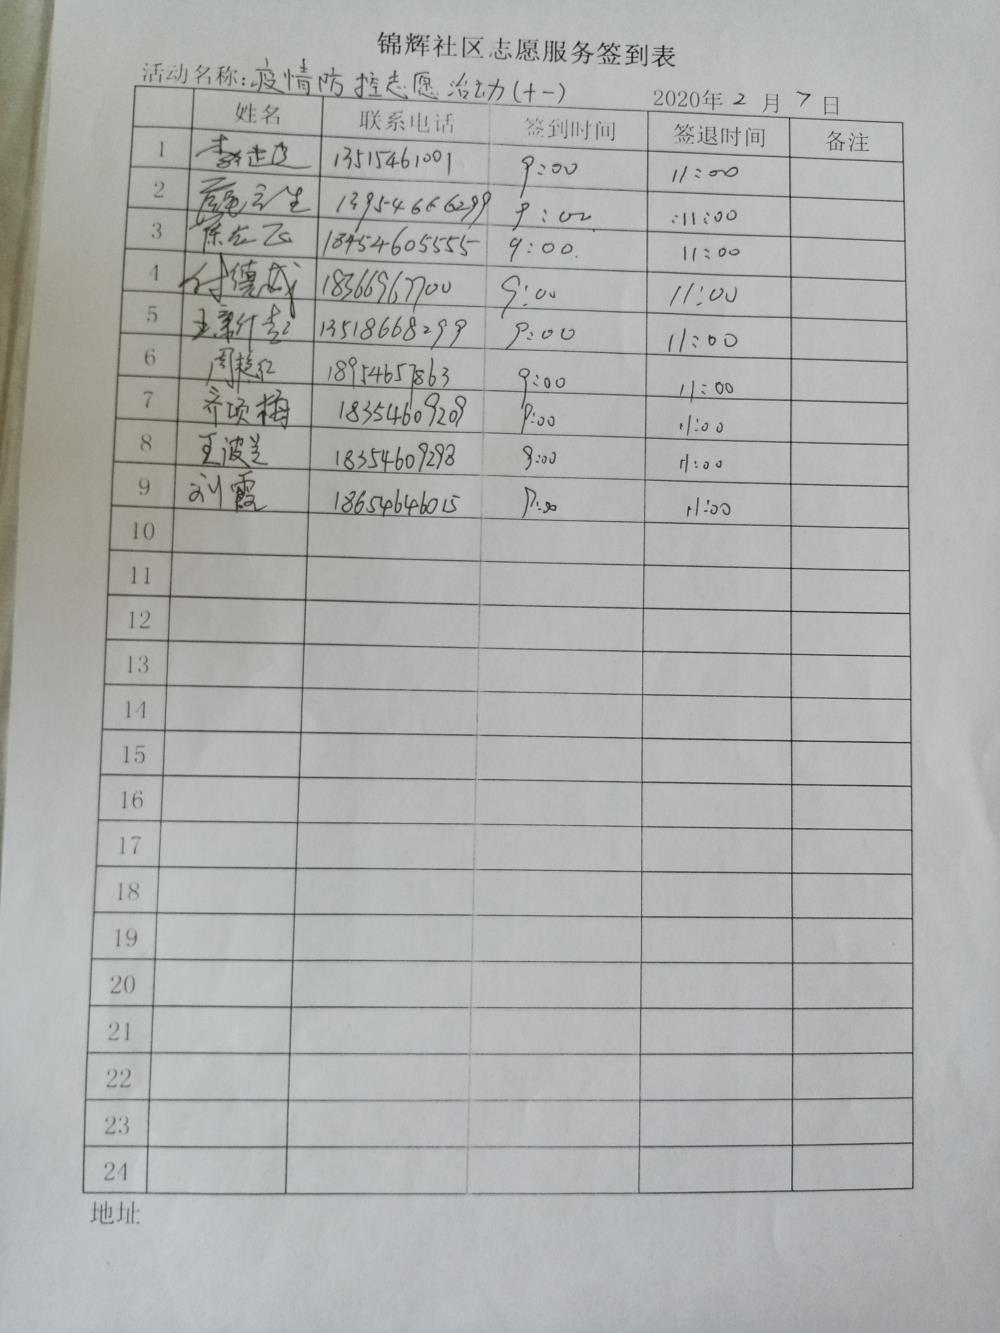 锦辉社区志愿服务签到表
活动名称:疫情防控志愿活动(十一) 2020年2月7日
姓名 联系电话 签到时间 签退时间 备注
1 13515461001 9:00 11:00
2 13954666299 9:00 :11:00
3 18954605555 9:00. 11:00
4 付德成 18366967700 9:00 11:00
5 13518668299 9:00 11:00
6 18954657863 9:00 11:00
7 18354609209 9:00 11:00
8 王波兰 18354609298 9:00 11:00
9 刘霞 18654646015 9:00 11:00
10
11
12
13
14
15
16
17
18
19
20
21
22
23
24
地址